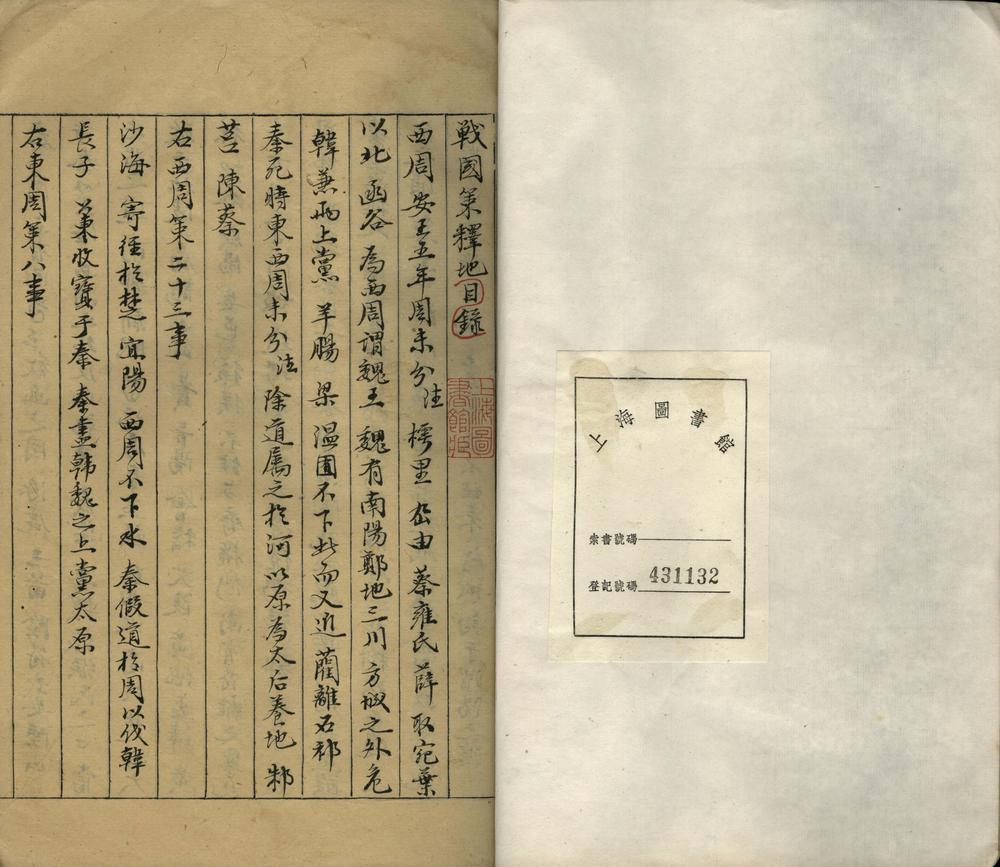 戰國策釋地目錄
西周安王五年周未分注 樗里 厹由 蔡 雍氏 薛 取宛葉
以北 函谷 為西周謂魏王 魏有南陽鄭地三川 方城之外危
韓兼兩上黨 羊腸 梁 溫囿不下此而又近 藺離石祁
秦死時東西周未分注 除道屬之於河 以原為太后養地 邾
莒 陳蔡
右西周策二十三事
沙海 寄徑於楚 宜陽 西周不下水 秦假道於周以伐韓
長子 策收寶于秦 秦盡韓魏之上黨太原
右東周策八事
上海圖書館
索書號碼
登記號碼 431132
上海圖書館